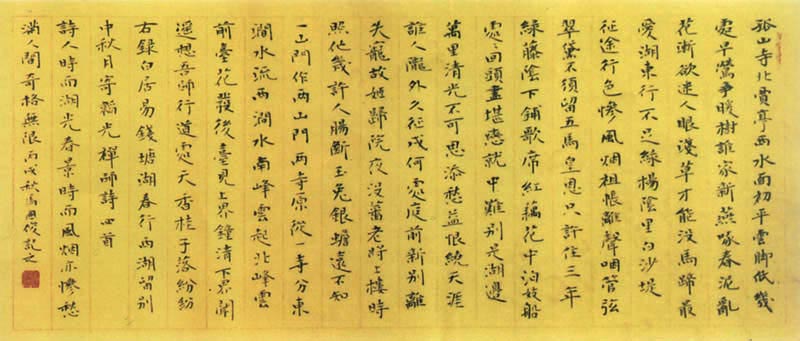 孤山寺北賈亭西水面初平雲脚低幾
處早鶯爭暖樹誰家新燕啄春泥亂
花漸欲迷人眼淺草才能沒馬蹄最
愛湖東行不足綠楊陰里白沙堤
征途行色慘風烟祖帳離聲咽管弦
翠黛不須留五馬皇恩只許住三年
綠藤陰下鋪歌席紅藕花中泊妓船
處〻回頭盡堪戀就中難別是湖邊
萬里清光不可思添愁益恨繞天涯
誰人隴外久征戍何處庭前新別離
失寵故姬歸院夜沒蕃老將上樓時
照他幾許人腸斷玉兔銀蟾遠不知
一山門作兩山門兩寺原從一寺分東
澗水流西澗水南峰雲起北峰雲
前臺花發後臺見上界鐘清下界聞
遥想吾師行道處天香桂子落紛紛
右録白居易錢塘湖春行西湖留別
中秋月寄韜光禪師詩四首
詩人時而湖光春景時而風烟亦慘愁
滿人間奇格無限丙戌秋馬國俊記之